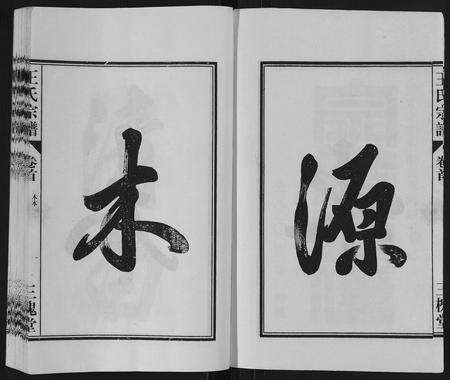 源
王氏宗譜
卷首
三槐堂
木
王氏宗譜
卷首
木本
一
三槐堂